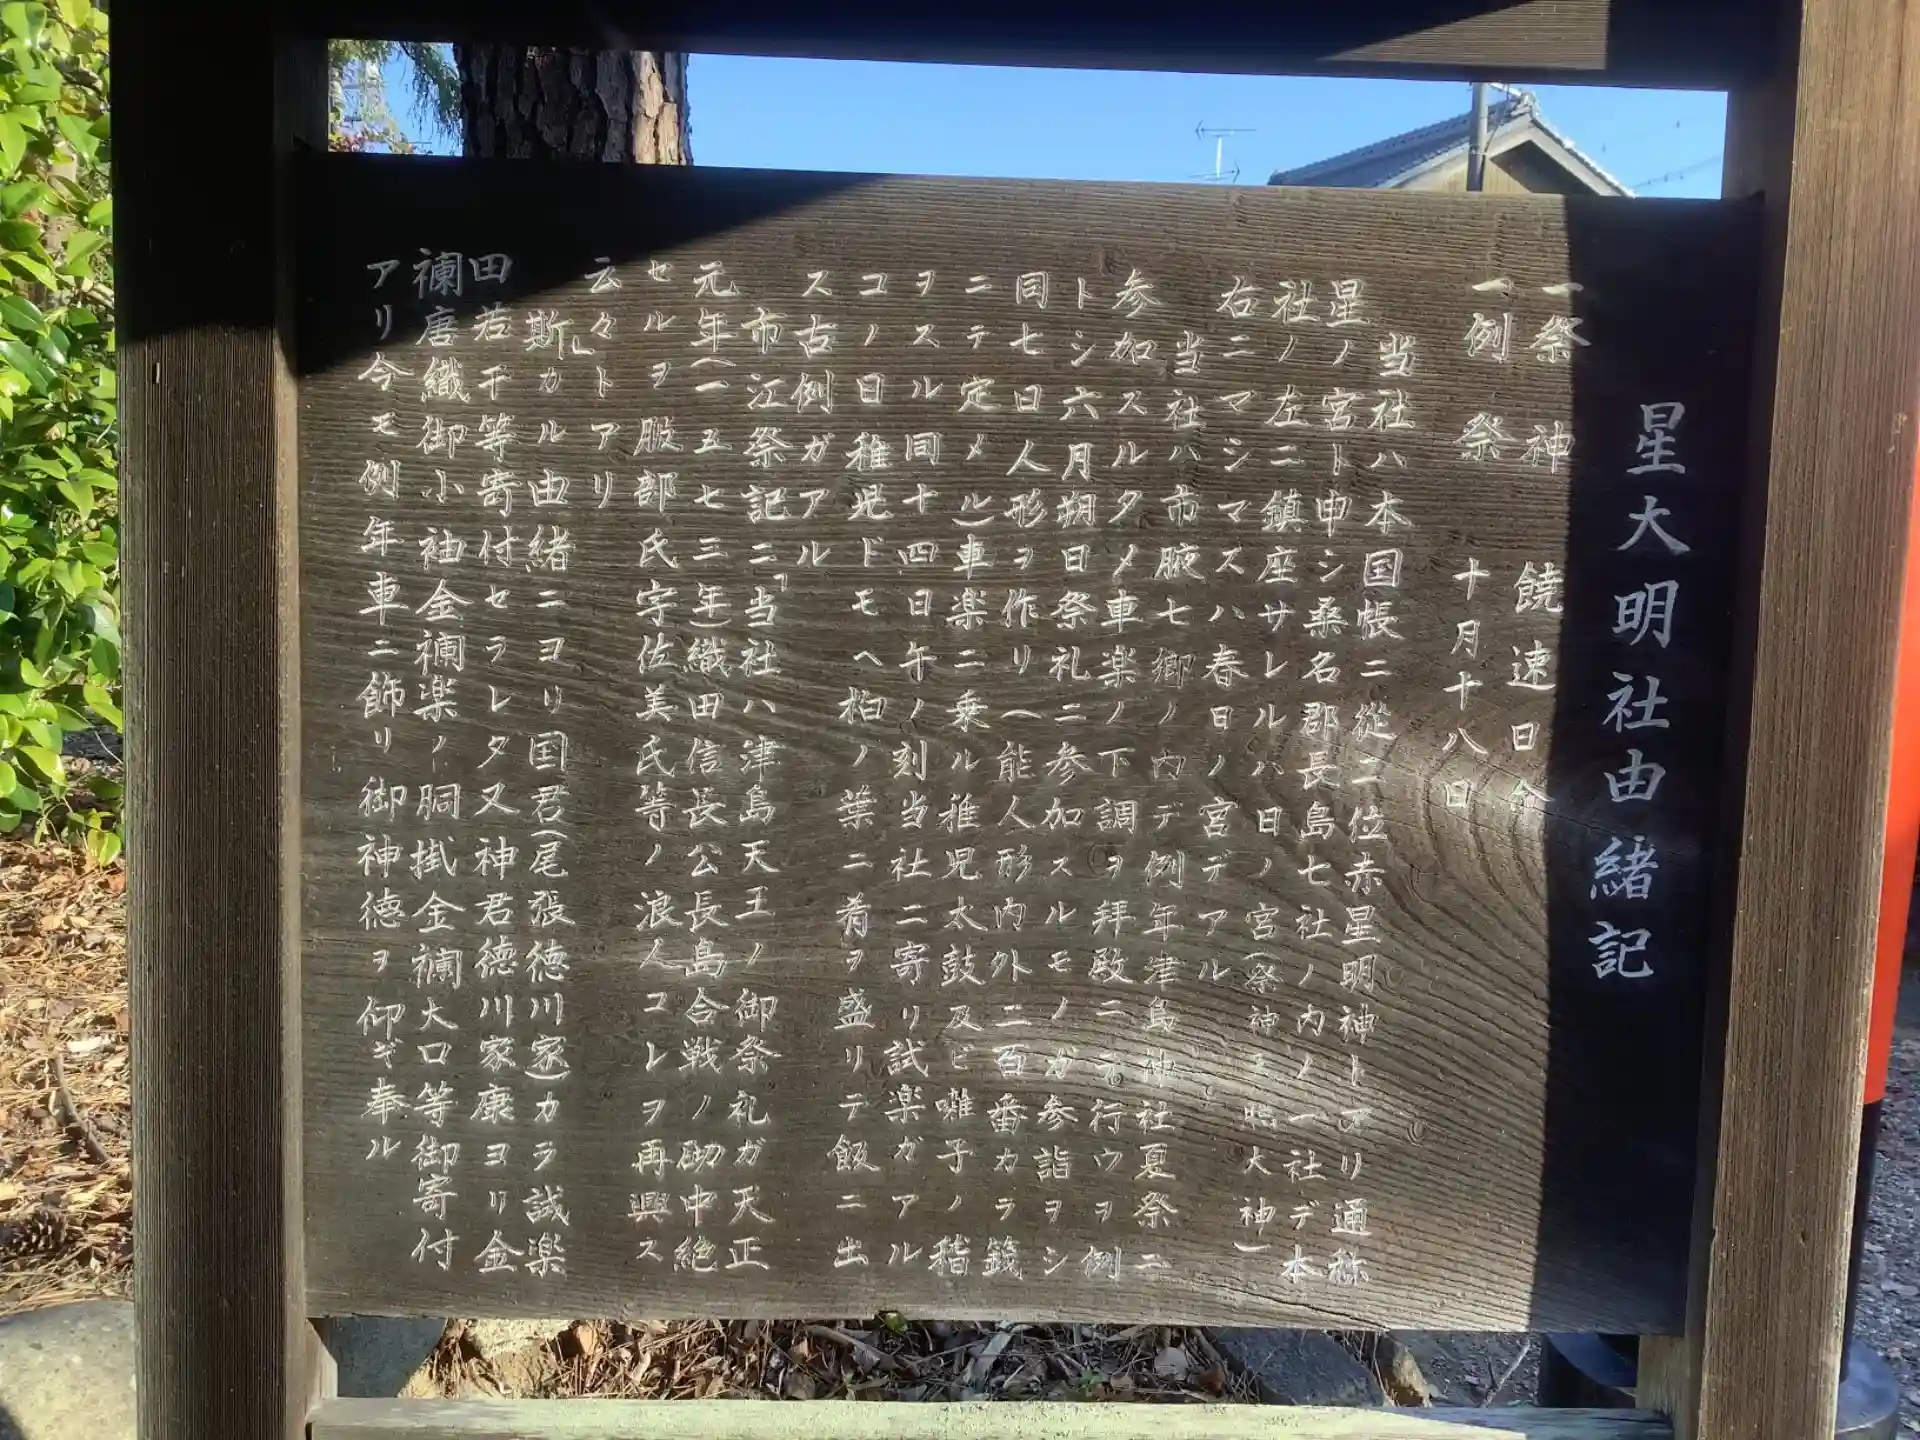 星大明社由緒記
一祭神 饒速日命
一例祭 十月十八日
当社ハ本国帳ニ従二位赤星明神トアリ通称
星ノ宮ト申シ桑名郡長島七社ノ内ノ一社デ本
社ノ左ニ鎮座サレルハ日ノ宮(祭神天照大神)
右ニマシマスハ春日ノ宮デアル
当社ハ市腋七郷ノ内デ例年津島神社夏祭ニ
参加スルタメ車楽ノ下調ヲ拝殿ニテ行ウヲ例
トシ六月朔日祭礼ニ参加スルモノガ参詣ヲシ
同七日人形ヲ作リ(能人形内外二百番カラ籤
ニテ定メル)車楽ニ乗ル稚児太鼓及ビ囃子ノ稽
ヲスル同十四日午ノ刻当社ニ寄リ試楽ガアル
コノ日稚児ドモヘ柏ノ葉ニ肴ヲ盛リテ飯ニ出
ス古例ガアル
市江祭記ニ「当社ハ津島天王ノ御祭礼ガ天正
元年(一五七三年)織田信長公長島合戦ノ砌中絶
セルヲ服部氏宇佐美氏等ノ浪人コレヲ再興ス
云々」トアリ
斯カル由緒ニヨリ国君(尾張徳川家)カラ誠楽
田若干等寄付セラレタ又神君徳川家康ヨリ金
襴唐織御小袖金襴楽ノ胴掛金襴大口等御寄付
アリ今モ例年車ニ飾リ御神徳ヲ仰ギ奉ル